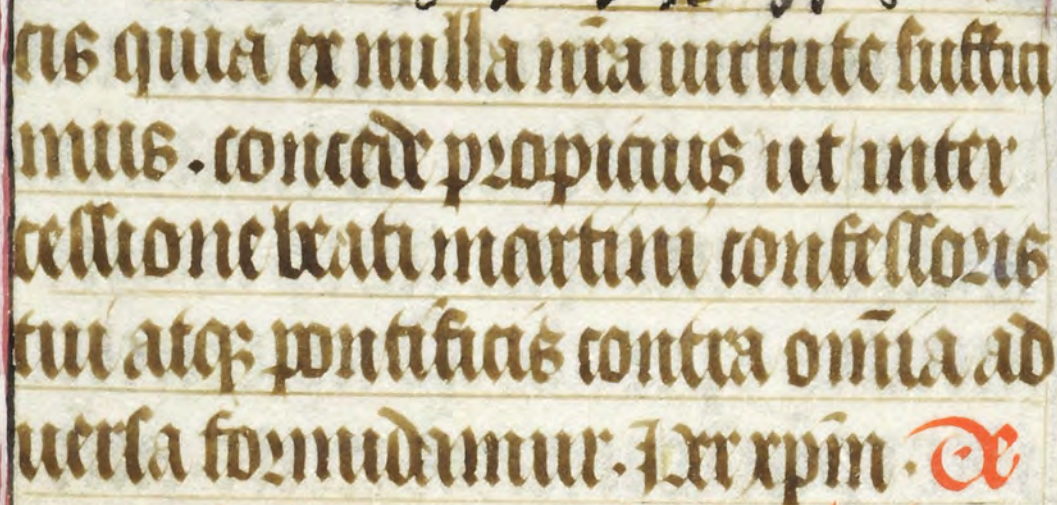 cis quia ex nulla nr̄a uirtute suffici
mus . concede propicius ut inter
cessione beati martini confessoris
tui atqꝫ pontificis contra om̄ia ad
uersa formidamur . Per xpm̄ . De